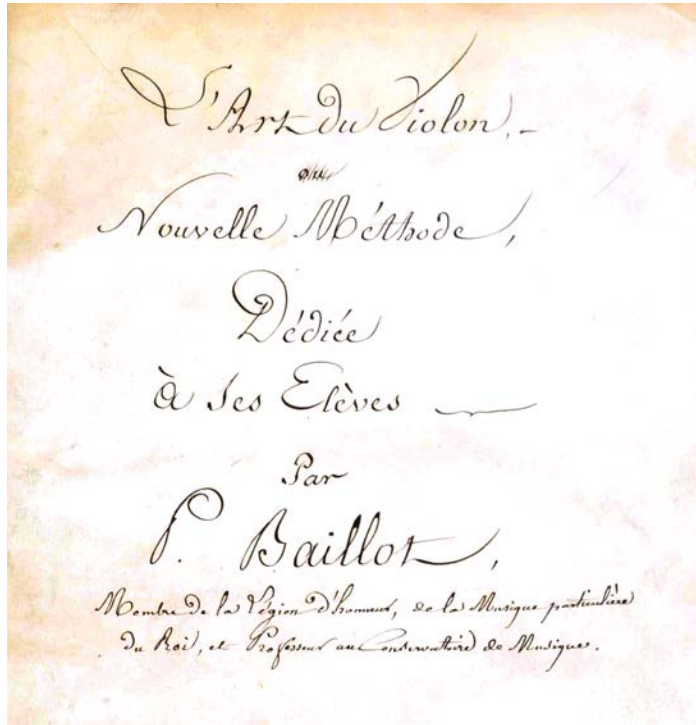 L'Art du Violon, -
Nouvelle Méthode,
Dédiée
à ses Elèves
Par
P. Baillot,
Membre de la Légion d'honneur, de la Musique particulière
du Roi, et Professeur au Conservatoire de Musique.